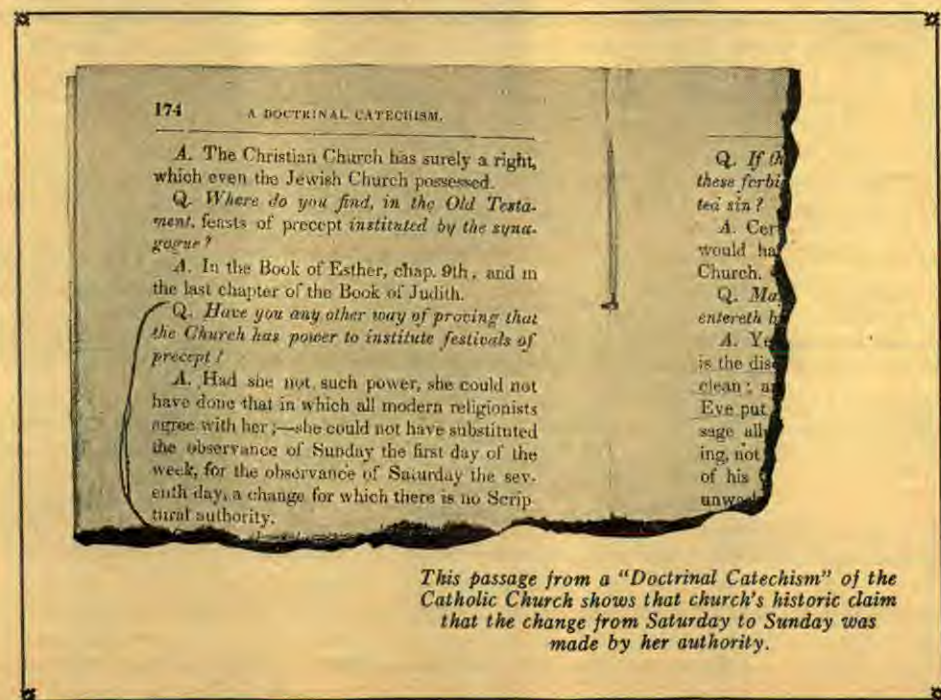 174 A DOCTRINAL CATECHISM.
A. The Christian Church has surely a right,
which even the Jewish Church possessed.
Q. Where do you find, in the Old Testa-
ment, feasts of precept instituted by the syna-
gogue?
A. In the Book of Esther, chap. 9th, and in
the last chapter of the Book of Judith.
Q. Have you any other way of proving that
the Church has power to institute festivals of
precept?
A. Had she not such power, she could not
have done that in which all modern religionists
agree with her;—she could not have substituted
the observance of Sunday the first day of the
week, for the observance of Saturday the sev-
enth day, a change for which there is no Scrip
tural authority.
Q. If th
these forbi
ted sin?
A. Cer
would ha
Church.
Q. Ma
entereth h
A. Ye
is the dis
clean; a
Eve put
sage all
ing, not
of his
unwa
This passage from a "Doctrinal Catechism" of the
Catholic Church shows that church's historic claim
that the change from Saturday to Sunday was
made by her authority.